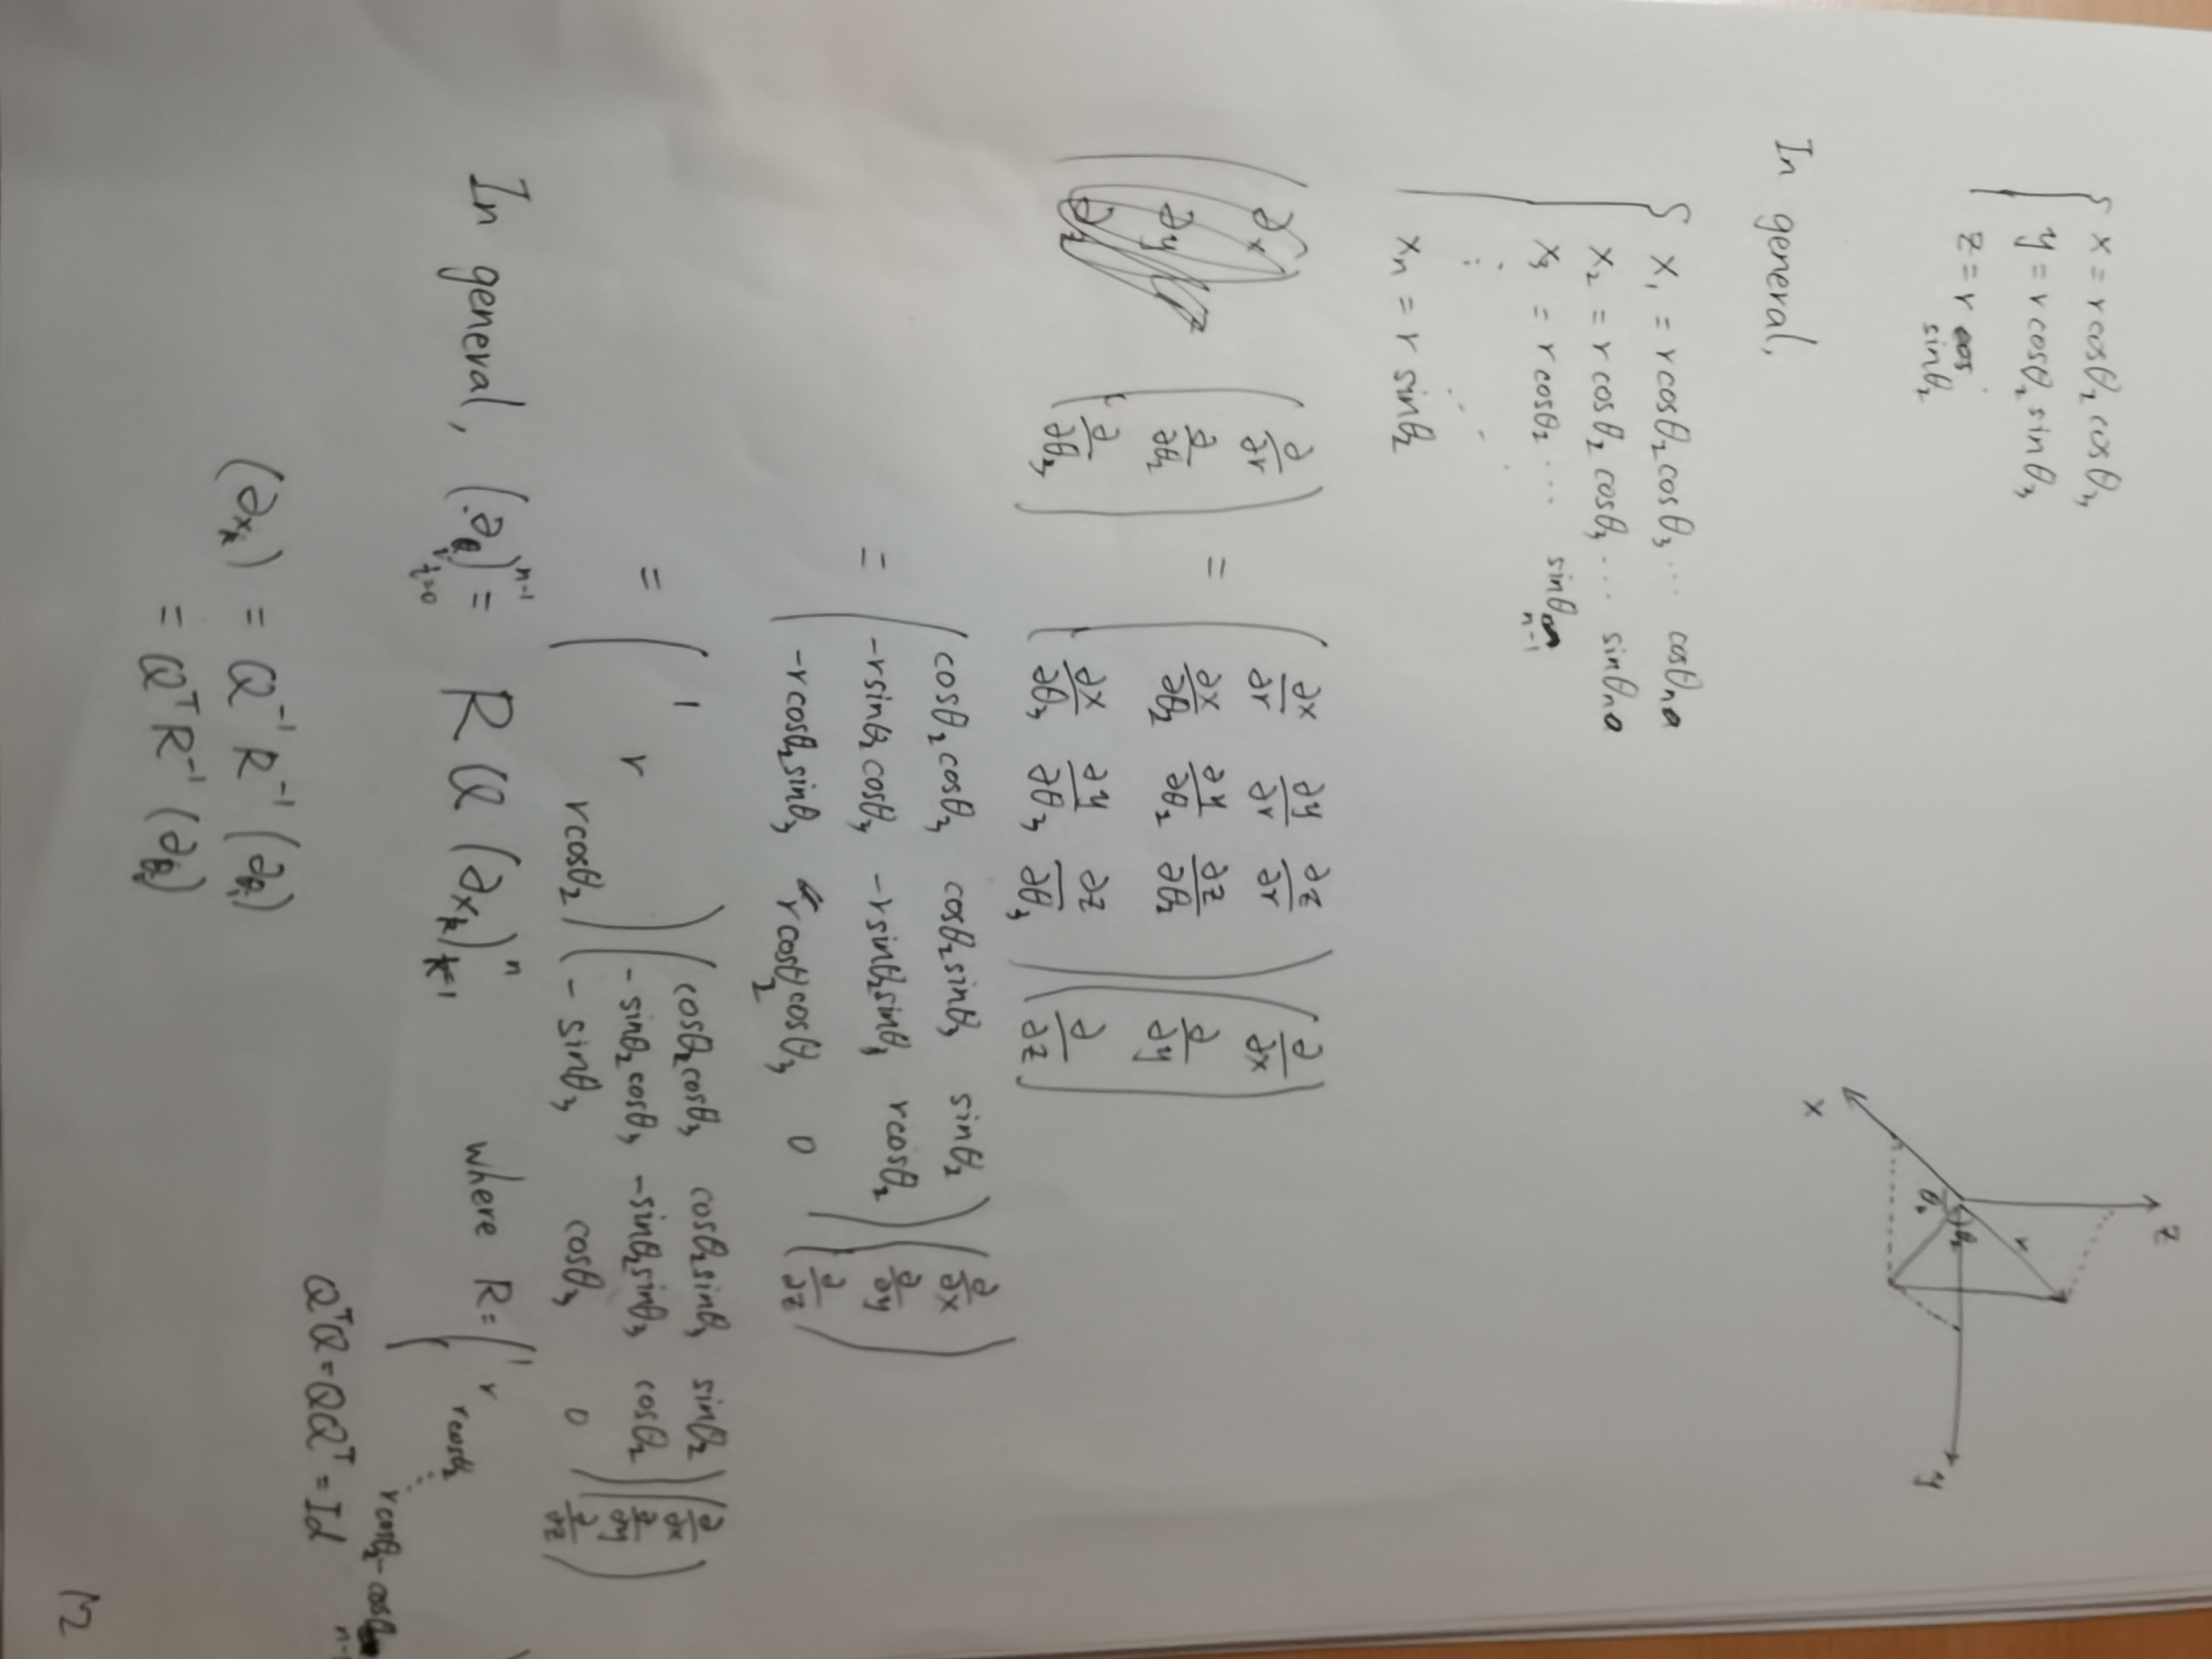 x = r cosθ₂ cosθ₃
y = r cosθ₂ sinθ₃
z = r
sinθ₂
z
r
θ₂
y
x
In general,
x₁ = r cosθ₂ cosθ₃ ··· cosθₙ
x₂ = r cosθ₂ cosθ₃ ··· sinθₙ
x₃ = r cosθ₂ ··· sinθₙ₋₁
⋮
xₙ = r sinθ₂
( ∂/∂r ) = ( ∂x/∂r ∂y/∂r ∂z/∂r ) ( ∂/∂x )
( ∂/∂θ₂ ) ( ∂x/∂θ₂ ∂y/∂θ₂ ∂z/∂θ₂ ) ( ∂/∂y )
( ∂/∂θ₃ ) ( ∂x/∂θ₃ ∂y/∂θ₃ ∂z/∂θ₃ ) ( ∂/∂z )
= ( cosθ₂cosθ₃ cosθ₂sinθ₃ sinθ₂ ) ( ∂/∂x )
( -r sinθ₂ cosθ₃ -r sinθ₂ sinθ₃ r cosθ₂ ) ( ∂/∂y )
( -r cosθ₂ sinθ₃ r cosθ₂ cosθ₃ 0 ) ( ∂/∂z )
= ( 1 ) ( cosθ₂cosθ₃ cosθ₂sinθ₃ sinθ₂ ) ( ∂/∂x )
( r ) ( - sinθ₂ cosθ₃ - sinθ₂ sinθ₃ cosθ₂ ) ( ∂/∂y )
( r cosθ₂ ) ( - sinθ₃ cosθ₃ 0 ) ( ∂/∂z )
In general, (∂θᵢ)ⁿ⁻¹ᵢ₌₀ = R Q (∂xₖ)ⁿₖ₌₁ where R = ( 1 r r cosθ₂ ⋱ r cosθ₂ - cosθₙ₋₁
QᵀQ = QQᵀ = Id
(∂xₖ) = Q⁻¹ R⁻¹ (∂θᵢ)
= Qᵀ R⁻¹ (∂θᵢ)
12